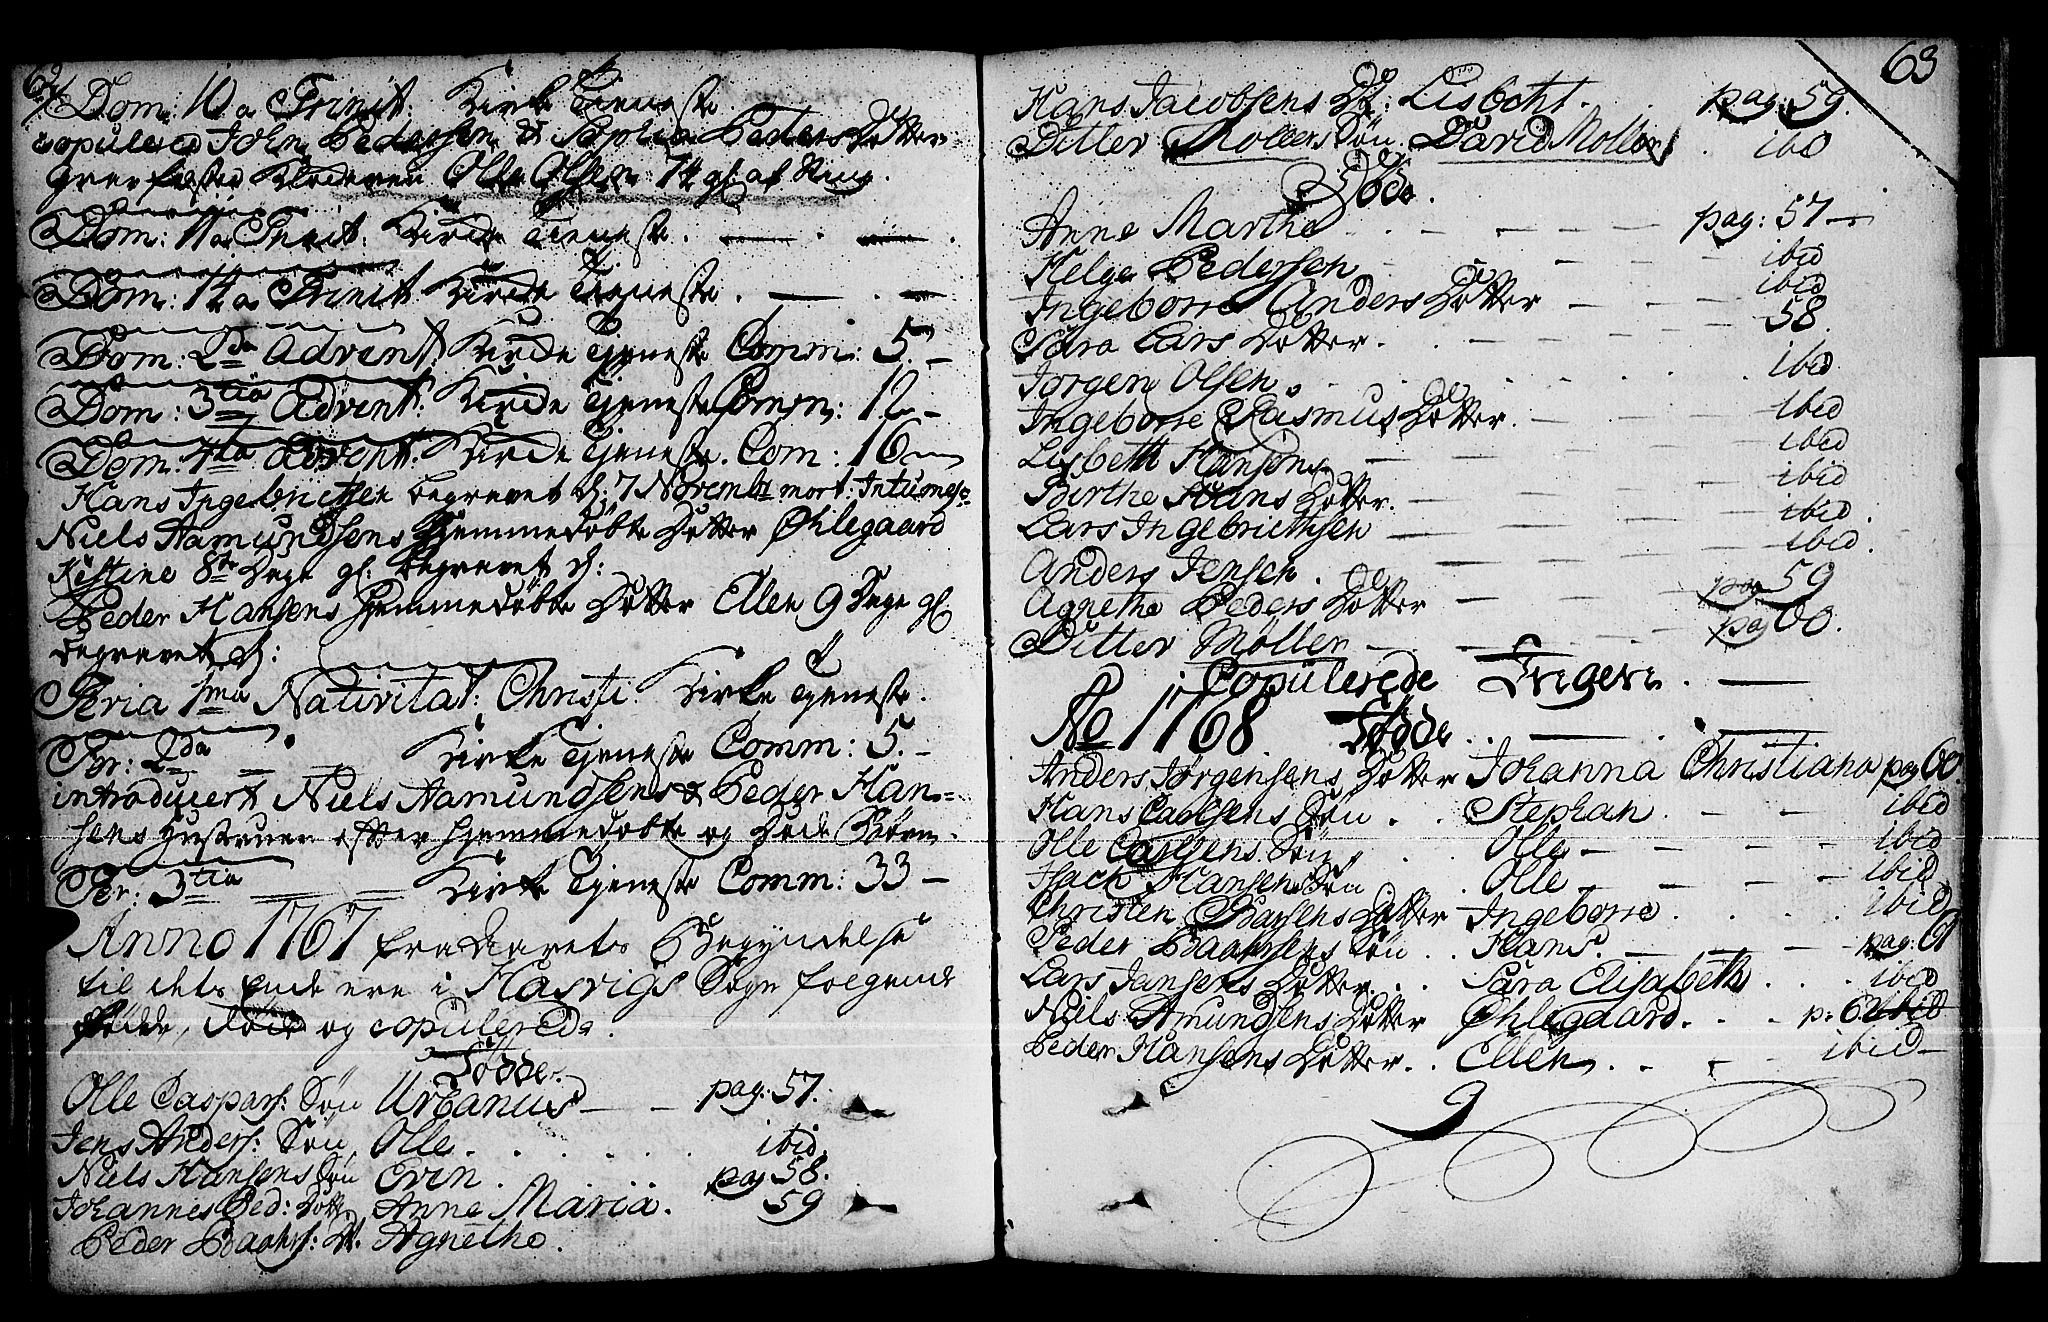 62
Dom: 10 a Trinit: Kirke Tieneste
copulered John Pedersen & Sophia Peders Dotter
Olle Olsen 74
Dom: 11 a Trinit: Kirke Tieneste.
Dom: 14 a Trinit Kirke Tieneste.
Dom: 2da Advent Kirke Tjeneste Comm: 5.
Dom: 3tia Advent: Kirke Tjeneste Comm: 12
Dom: 4ta Advent: Kirke Tjeneste. Com: 16
Hans Ingebrictsen begravet d: 7 Novembr mort:
Niels Aamundsens hjemmedøbte Dotter Øhlegaard
Kistine 8te Dage gl: begravet d:
Peder Hansens hjemmedøbte Dotter Ellen 9 Dage gl
begravet d:
Feria 1ma Nativitat: Christi. Kirke Tjeneste.
Fer: 2da Kirke Tjeneste Comm: 5.
introducert Niels Aamundsens & Peder Han-
sens Hustruer efter hjemmedøbte og døde Børn.
Fer: 3tia Kirke Tjeneste Comm: 33
Anno 1767 fra Aarets Begyndelse
til dets Ende ere i Hasvigs Sogn følgende
Fødde, døde og copulerede.
Fødde.
Olle Caspars: Søn Urbanus pag: 57.
Jens Anders: Søn Olle. ibid.
Niels Hansens Søn Evin. pag 58.
Johannes Ped: Dotter Anne Maria. 59
Peder Baahrs: Dr. Agnethe.
63
Hans Jacobsens Dr: Lisbeht. pag: 59.
Ditler Møllers Søn David Møller. ibd
Døde.
Anne Marthe pag: 57
Helge Pedersen ibid
Ingeborre Anders Dotter ibid
Sara Lars Dotter. 58.
Jørgen Olsen. ibid
Ingeborre Rasmus Dotter. ibid
Lisbeth Hansen ibid
Birthe Hans Dotter. ibid
Lars Ingebricthsen ibid.
Anders Jensen. ibid.
Agnethe Peders Dotter pag 59
Ditler Møller pag 60.
Copulerede Ingen.
Ao 1768 Fødde.
Anders Jørgensens Dotter Johanna Christiana pag 60.
Hans Carlsens Søn Stephan ibid
Olle Carlsens Søn Olle ibid
Hach Hansens Søn Olle ibid
Christen Baarsens Dotter Ingeborre ibid
Peder Baahrsens Søn Hans pag: 61
Lars Jansens Dotter Sara Elisabeth ibid
Niels Amundsens Dotter Øhlegaard. p: 62
Peder Hansens Dotter Ellen ibid
9